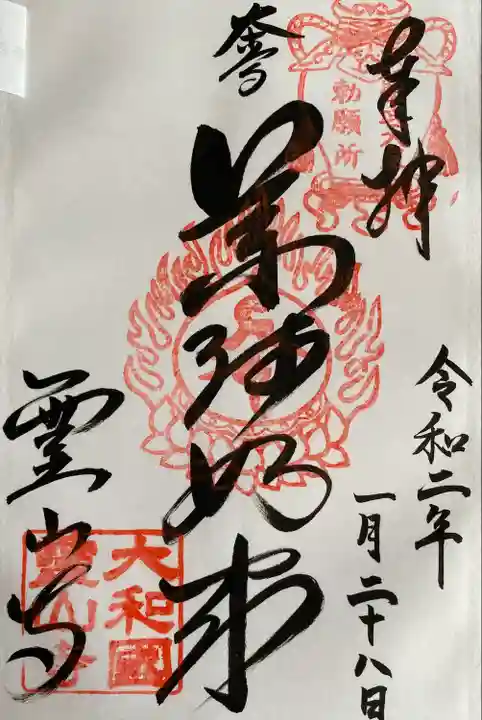 奉拝
勅願所
令和二年
一月二十八日
薬師如来
霊山寺
大和國
靈山寺